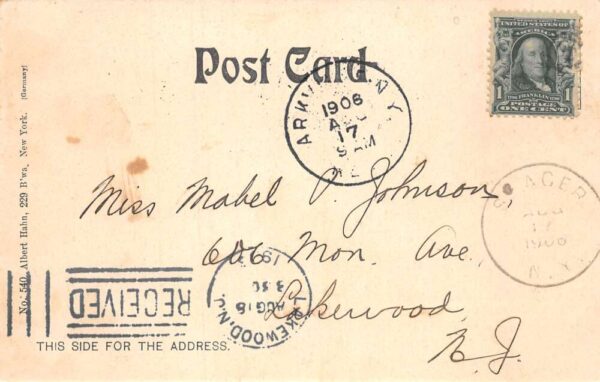 Post Card
UNITED STATES OF
AMERICA
FRANKLIN
1 POSTAGE 1
ONE CENT
N.Y.
1906
AUG
17
9 AM
Miss Mabel P. Johnson,
606 Mon. Ave.
Lakewood,
N. J.
AUG
17
1906
N.Y.
RECEIVED
LAKEWOOD, N.J.
AUG 18
THIS SIDE FOR THE ADDRESS.
No. 540. Albert Hahn, 229 B'wa, New York. [Germany]